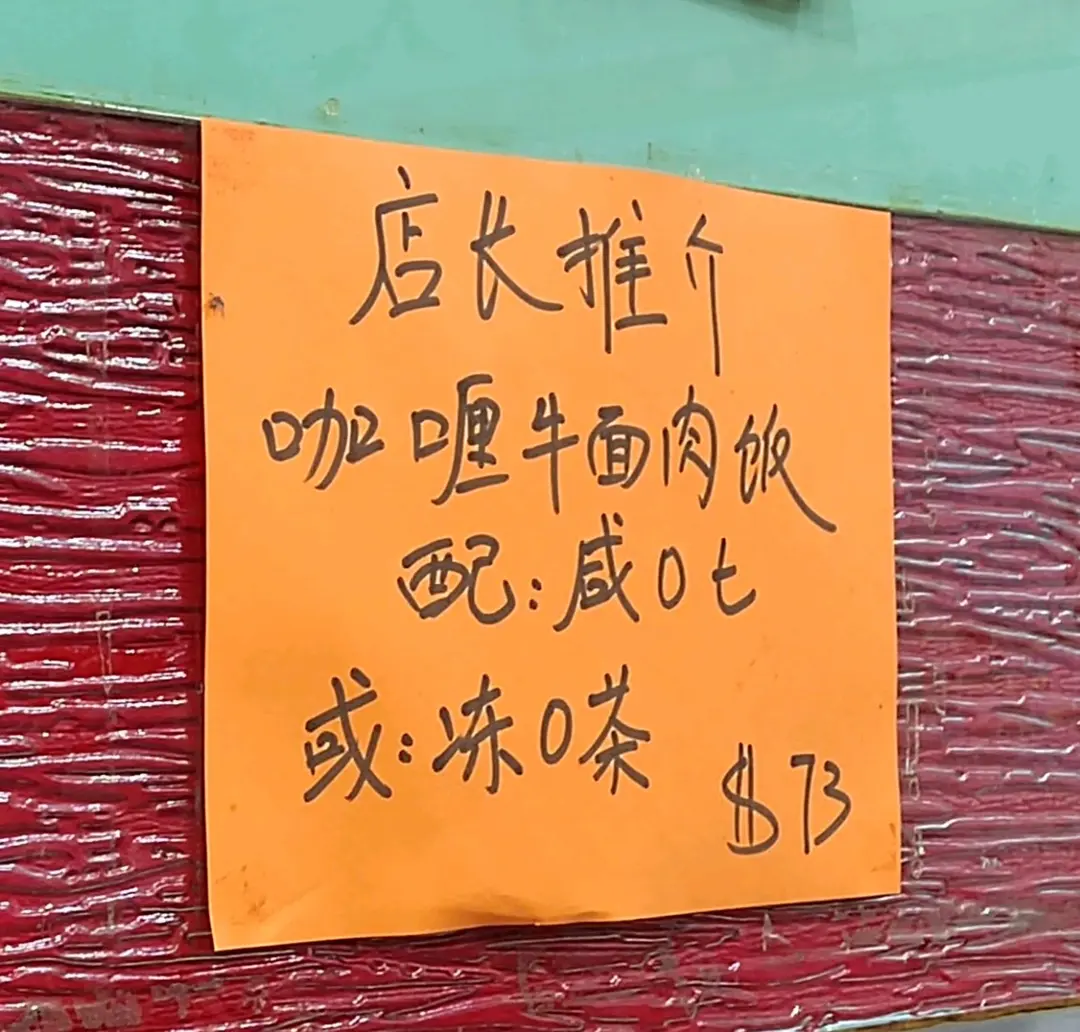 店长推介
咖喱牛面肉饭
配:咸0七
或:冻0茶
$73